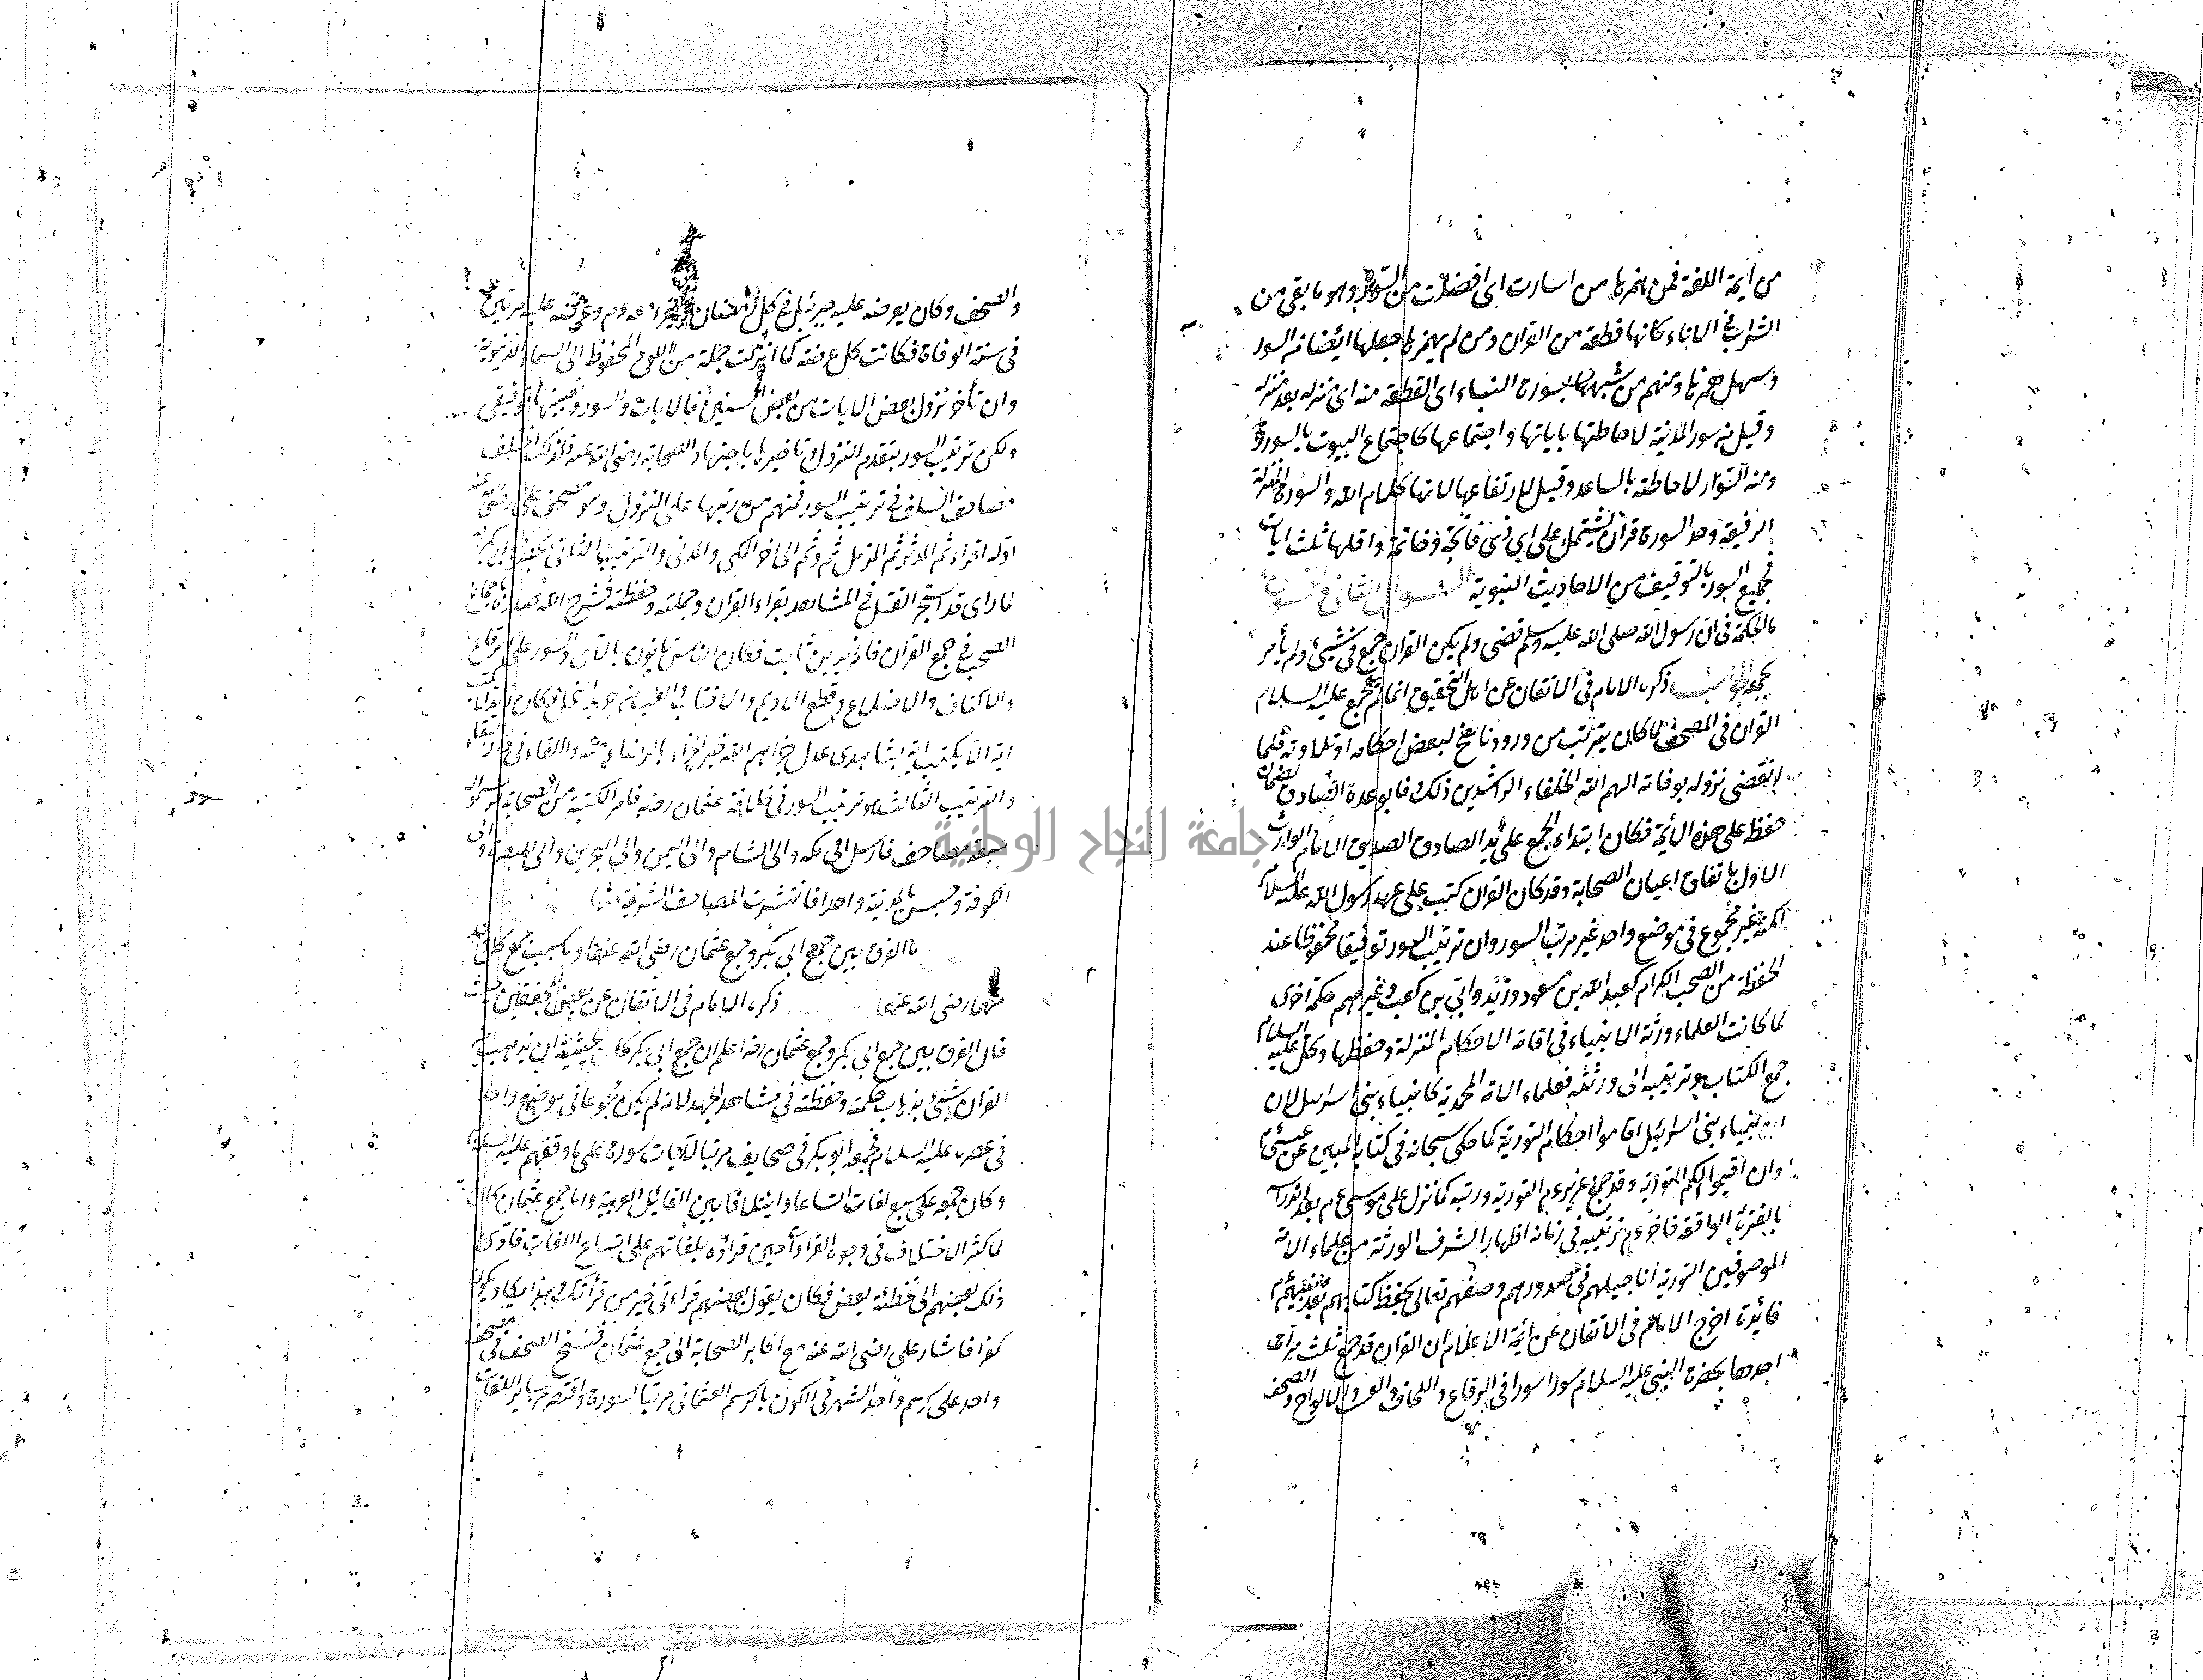 من ايمة اللغة فمن يهمزها من اسارت اى افضلت من السؤر وهو ما بقى من
الشراب فى الاناء كانها قطعة من القرآن ومن لم يهمزها جعلها ايضا من السور
وسهل همزها ومنهم من شبهها بسورة البناء اى القطعة منه اى منزله بعد منزله
وقيل من سور المدينة لاحاطتها باياتها واجتماعها كاجتماع البيوت بالسور
ومنه السوار لاحاطته بالساعد وقيل لارتفاعها لانها كلام الله والسورة المنزلة
الرفيعة وحد السورة قرآن يشتمل على اى ذى فاتحة وخاتمة واقلها ثلث ايات
فجميع السور بالتوقيف من الاحاديث النبوية السؤال الثانى
ما الحكمة فى ان رسول الله صلى الله عليه وسلم قضى ولم يكن القران جمع فى شيئ ولم يأمر
بجمعه الجواب ذكره الامام فى الاتقان عن اهل التحقيق انما لم يجمع عليه السلام
القران فى المصحف لما كان يترقب من ورود ناسخ لبعض احكامه او تلاوته فلما
انقضى نزوله بوفاته الهم الله الخلفاء الراشدين ذلك فابوعده الصادق لضمان
حفظه على هذه الائمة فكان ابتداء الجمع على يد الصادق الصديق الامام الوارث
الاول باتفاق اعيان الصحابة وقد كان القران كتب على عهد رسول الله عليه السلام
لكنه غير مجموع فى موضع واحد غير مرتب السور وان ترتيب السور توقيفا محفوظا عند
الحفظة من الصحب الكرام كعبد الله بن مسعود وزيد وابى بن كعب وغيرهم حكمة اخرى
لما كانت العلماء ورثة الانبياء فى اقامة الاحكام المنزلة وحفظها وكل عليه السلام
جمع الكتاب وترتيبه الى ورثته فعلماء الامة المحمدية كانبياء بنى اسرائيل لان
انبياء بنى اسرائيل اقاموا احكام التورية كما حكى سبحانه فى كتاب المبين عن عيسى
وان اقيموا لكم التورية وقد جمع عزير عم التورية ورتبه كما نزل على موسى عم بعد اندراسه
بالفترة الواقعة فاخر عم ترتيبه فى زمانه اظهارا لشرف الورثة من علماء الامة
الموصوفين التورية اناجيلهم فى صدورهم وصفهم تعالى بحفظ كتابهم
فائدة اخرج الامام فى الاتقان عن ائمة الاعلام ان القران قد جمع ثلث مرات
احدها بحضرة النبى عليه السلام سورا سورا فى الرقاع واللخاف والعسب والالواح والصحف
والصحف وكان يعرضه عليه جبرئيل فى كل رمضان عم وعرضه عليه مرتين
فى سنة الوفاة فكانت كل عرضة كما انزلت جملة من اللوح المحفوظ الى السماء الدنيوية
وان تأخر نزول بعض الايات من بعض السنين فالايات والسور وتعيينها توقيفى
ولكن ترتيب السور بتقدم النزول تاخيرها باجتهاد الصحابة رضى الله عنه فلذلك اختلف
مصاحف السلف فى ترتيب السور فمنهم من رتبها على النزول وهو مصحف على رضى الله عنه
اوله اقراء ثم المدثر ثم المزمل ثم وثم الى اخر المكى والمدنى والترتيب الثانى بحضرة ابى بكر
لما راى قد استحر القتل فى المشاهد بقراء القران وحملته وحفظته فشرح الله صدره باجماع
الصحب فى جمع القران فامر زيد بن ثابت فكان الناس ياتون بالآى والسور على الرقاع
والاكتاف والاضلاع وقطع الاديم والاقتاب والعسب من جريد النخل وكان زيد لا يكتب
اية الا يكتب اية بشاهدى عدل جزاهم الله خير الجزاء بالرضاء عنه واللقاء فى دار البقاء
والترتيب الثالث هو ترتيب السور فى خلافة عثمان رضه فامر الكتبة من الصحابة
سبعة مصاحف فارسل الى مكه والى الشام والى اليمن والى البحرين والى البصرة والى
الكوفة وحبس بالمدينة واحدا فانتشرت المصاحف الشرفية منها
ما الفرق بين جمع ابى بكر وجمع عثمان رضى الله عنهما وما سبب جمع كل
منهما رضى الله عنهما ذكره الامام فى الاتقان عن بعض المحققين حيث
قال الفرق بين جمع ابى بكر وجمع عثمان رضه اعلم ان جمع ابى بكر كان لخشية ان يذهب من
القران شيئ بذهاب حملته وحفظته فى مشاهد الجهاد لانه لم يكن مجموعا فى موضع واحد
فى عصره عليه السلام فجمعه ابو بكر فى صحايف مرتبا لآيات سورة على ما وقفهم عليه السلام
وكان جمعه على سبع لغات اتساعا وايتلافا بين القبائل العربية واما جمع عثمان كان
لما كثر الاختلاف فى وجوه القراءة حين قراؤه بلغاتهم على اتساع اللغات فادى
ذلك بعضهم الى تخطئة بعض فكان يقول بعضهم قراءتى خير من قرأتك وهذا يكاد يكون
كفرا فاشار على رضى الله عنه مع اكابر الصحابة الى جمع عثمان فنسخ الصحف فى مصحف
واحد على رسم واحد اشتهر فى الكون بالرسم العثمانى مرتبا لسوره واقتصر من ساير اللغات
جامعة النجاح الوطنية